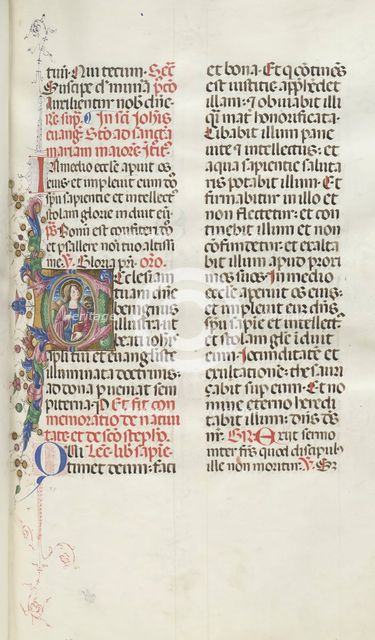 tuus. Qui tecum. Secr.
Suscipe dñe munera
In medio eccl'e aperuit os
eius: et impleuit eum dñs
spū sapientie et intellectus
stolam glorie induit eum.
ps Bonum est confiteri dño
et psallere nomini tuo altissi
me. V. Gloria pri. oro.
Ecclesiam
tuam dñe
benignus
illustra: ut
beati iohis
apli tui et euangeliste
illuminata doctrinis:
ad dona pueniat sem
piterna. P. Et fit com
memoratio de natiui
tate et de sco stepho.
Lec. lib. sapie.
Qui timet deum: faci
et bona. Et qui cotinens
est iustitie apphedet
illam: et obuiabit illi
quasi mater honorificata.
Cibabit illum pane
uite et intellectus: et
aqua sapientie saluta
ris potabit illum. Et
firmabitur in illo et
non flectetur: et con
tinebit illum et non
confundetur: et exalta
bit illum apud proxi
mos suos. In medio
eccl'e aperuit os eius:
et impleuit eum dñs
spū sapientie et intellect'
et stolam glie induit
eum. Iocunditatem et
exultatione: thesauri
çabit sup eum. Et no
mine eterno heredi
tabit illum: dñs ds
nr. GR. Exijt sermo
inter frs quod discipul'
ille non moritur. V. Et
Heritage